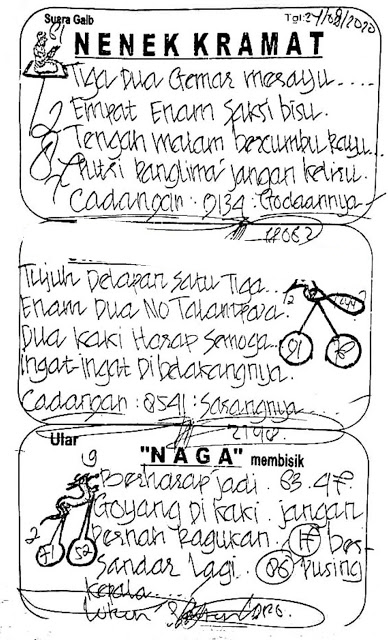 Suara Gaib
Tgl: 24/08/2020
NENEK KRAMAT
Tiga Dua Gemar merayu....
Empat Enam Saksi bisu.
Tengah malam bercumbu rayu...
Putri Panglima jangan keliru.
Cadangan : 9134 : Godaannya
Tujuh Delapan Satu Tiga...
Enam Dua No
Dua kaki Harap Semoga...
ingat-ingat Di belakangnya.
Cadangan : 8541 : Sarangnya....
91
78
2198.
Ular
"NAGA" membisik
Berharap jadi. 83. 47.
Goyang Di kaki jangan
pernah ragukan. 17 ber-
Sandar Lagi. 86 pusing
kepala
71
52